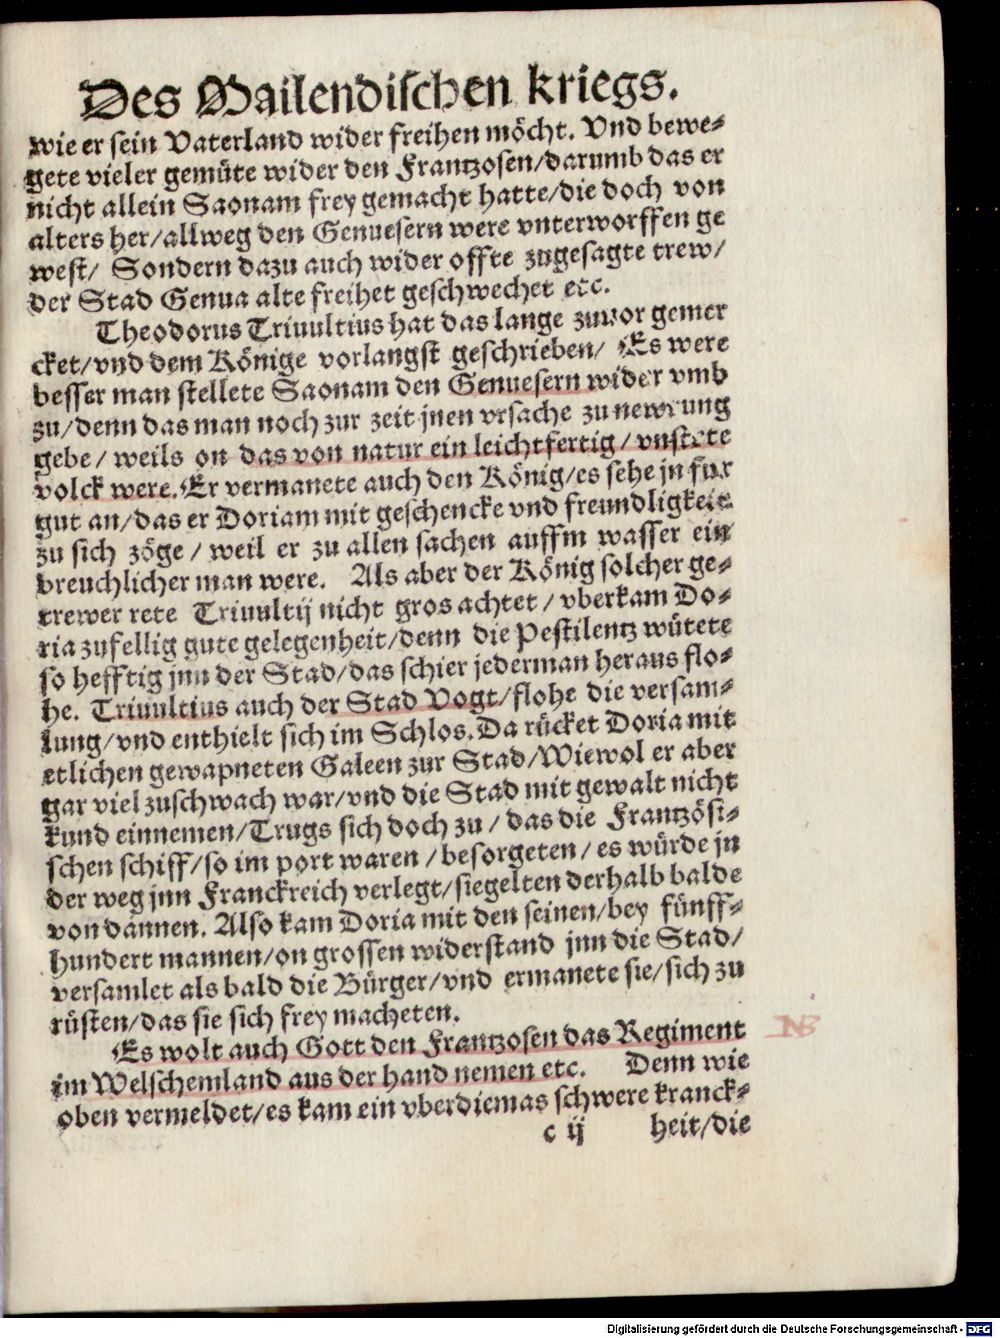 Des Mailendischen kriegs.
wie er sein Vaterland wider freihen möcht. Vnd bewe-
gete vieler gemüte wider den Frantzosen/darumb das er
nicht allein Saonam frey gemacht hatte/die doch von
alters her/allweg den Genuesern were vnterworffen ge
west/ Sondern dazu auch wider offte zugesagte trew/
der Stad Genua alte freihet geschwechet etc.
Theodorus Triuultius hat das lange zuuor gemer
cket/vnd dem Könige vorlangst geschrieben/ Es were
besser man stellete Saonam den Genuesern wider vmb
zu/denn das man noch zur zeit jnen vrsache zu newrung
gebe/ weils on das von natur ein leichtfertig/vnstete
volck were. Er vermanete auch den König/es sehe jn fur
gut an/das er Doriam mit geschencke vnd freundligkeit
zu sich zöge/ weil er zu allen sachen auffm wasser ein
breuchlicher man were. Als aber der König solcher ge-
trewer rete Triuultij nicht gros achtet/ vberkam Do-
ria zufellig gute gelegenheit/denn die Pestilentz wütete
so hefftig jnn der Stad/das schier jederman heraus flo-
he. Triuultius auch der Stad Vogt/flohe die versam-
lung/vnd enthielt sich im Schlos. Da rücket Doria mit
etlichen gewapneten Galeen zur Stad/Wiewol er aber
gar viel zuschwach war/vnd die Stad mit gewalt nicht
kund einnemen/Trugs sich doch zu/ das die Frantzösi-
schen schiff/so im port waren/besorgeten/ es würde jn
der weg jnn Franckreich verlegt/siegelten derhalb balde
von dannen. Also kam Doria mit den seinen/bey fünff-
hundert mannen/on grossen widerstand jnn die Stad/
versamlet als bald die Bürger/vnd ermanete sie/sich zu
rüsten/das sie sich frey macheten.
Es wolt auch Gott den Frantzosen das Regiment
im Welschemland aus der hand nemen etc. Denn wie
oben vermeldet/es kam ein vberdiemas schwere kranck-
c ij heit/die
NB
Digitalisierung gefördert durch die Deutsche Forschungsgemeinschaft - DFG